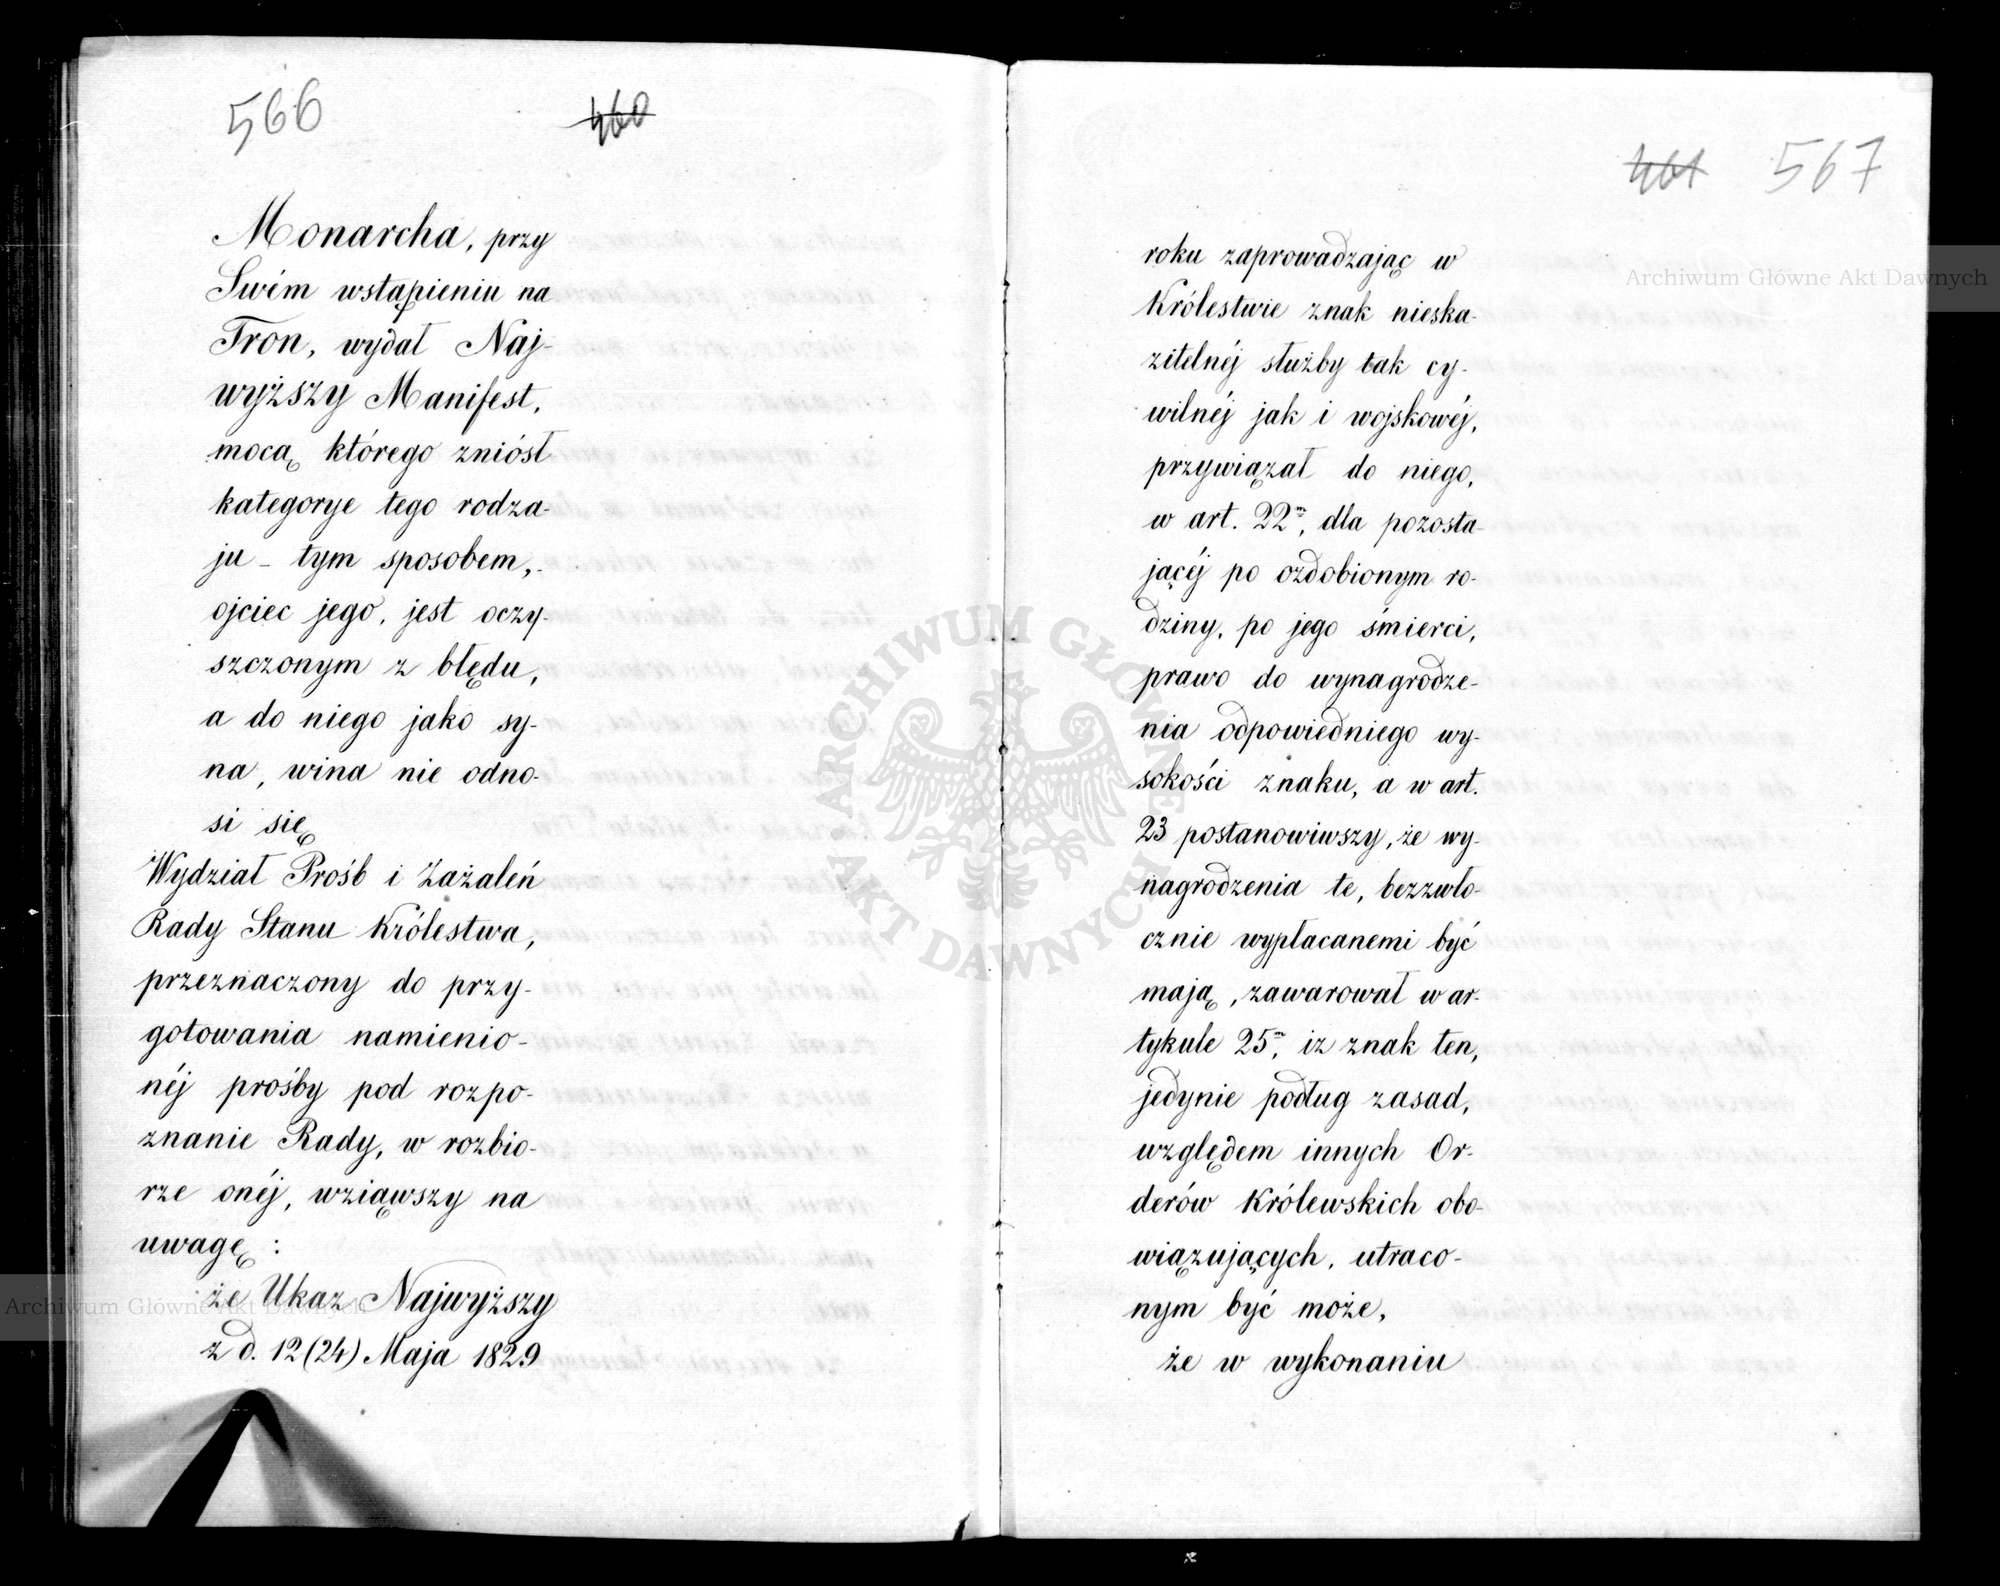 566
460
Monarcha, przy
Swém wstąpieniu na
Tron, wydał Naj-
wyższy Manifest,
mocą którego zniósł
kategorye tego rodza-
ju – tym sposobem,
ojciec jego, jest oczy-
szczonym z błędu,
a do niego jako sy-
na, wina nie odno-
si się
Wydział Próśb i Zażaleń
Rady Stanu Królestwa,
przeznaczony do przy-
gotowania namienio-
néj prośby pod rozpo-
znanie Rady, w rozbio-
rze onéj, wziąwszy na
uwagę :
że Ukaz Najwyższy
z d. 12 (24) Maja 1829
461 567
roku zaprowadzając w
Królestwie znak nieska-
zitelnéj służby tak cy-
wilnéj jak i wojskowéj,
przywiązał do niego,
w art. 22m, dla pozosta-
jącéj po ozdobionym ro-
dziny, po jego śmierci,
prawo do wynagrodze-
nia odpowiedniego wy-
sokości znaku, a w art.
23 postanowiwszy, że wy-
nagrodzenia te, bezzwło-
cznie wypłacanemi być
mają, zawarował w ar-
tykule 25m, iz znak ten,
jedynie podług zasad,
względem innych Or-
derów Królewskich obo-
wiązujących, utraco-
nym być może,
że w wykonaniu
Archiwum Główne Akt Dawnych
Archiwum Główne Akt Dawnych
ARCHIWUM GŁÓWNE AKT DAWNYCH